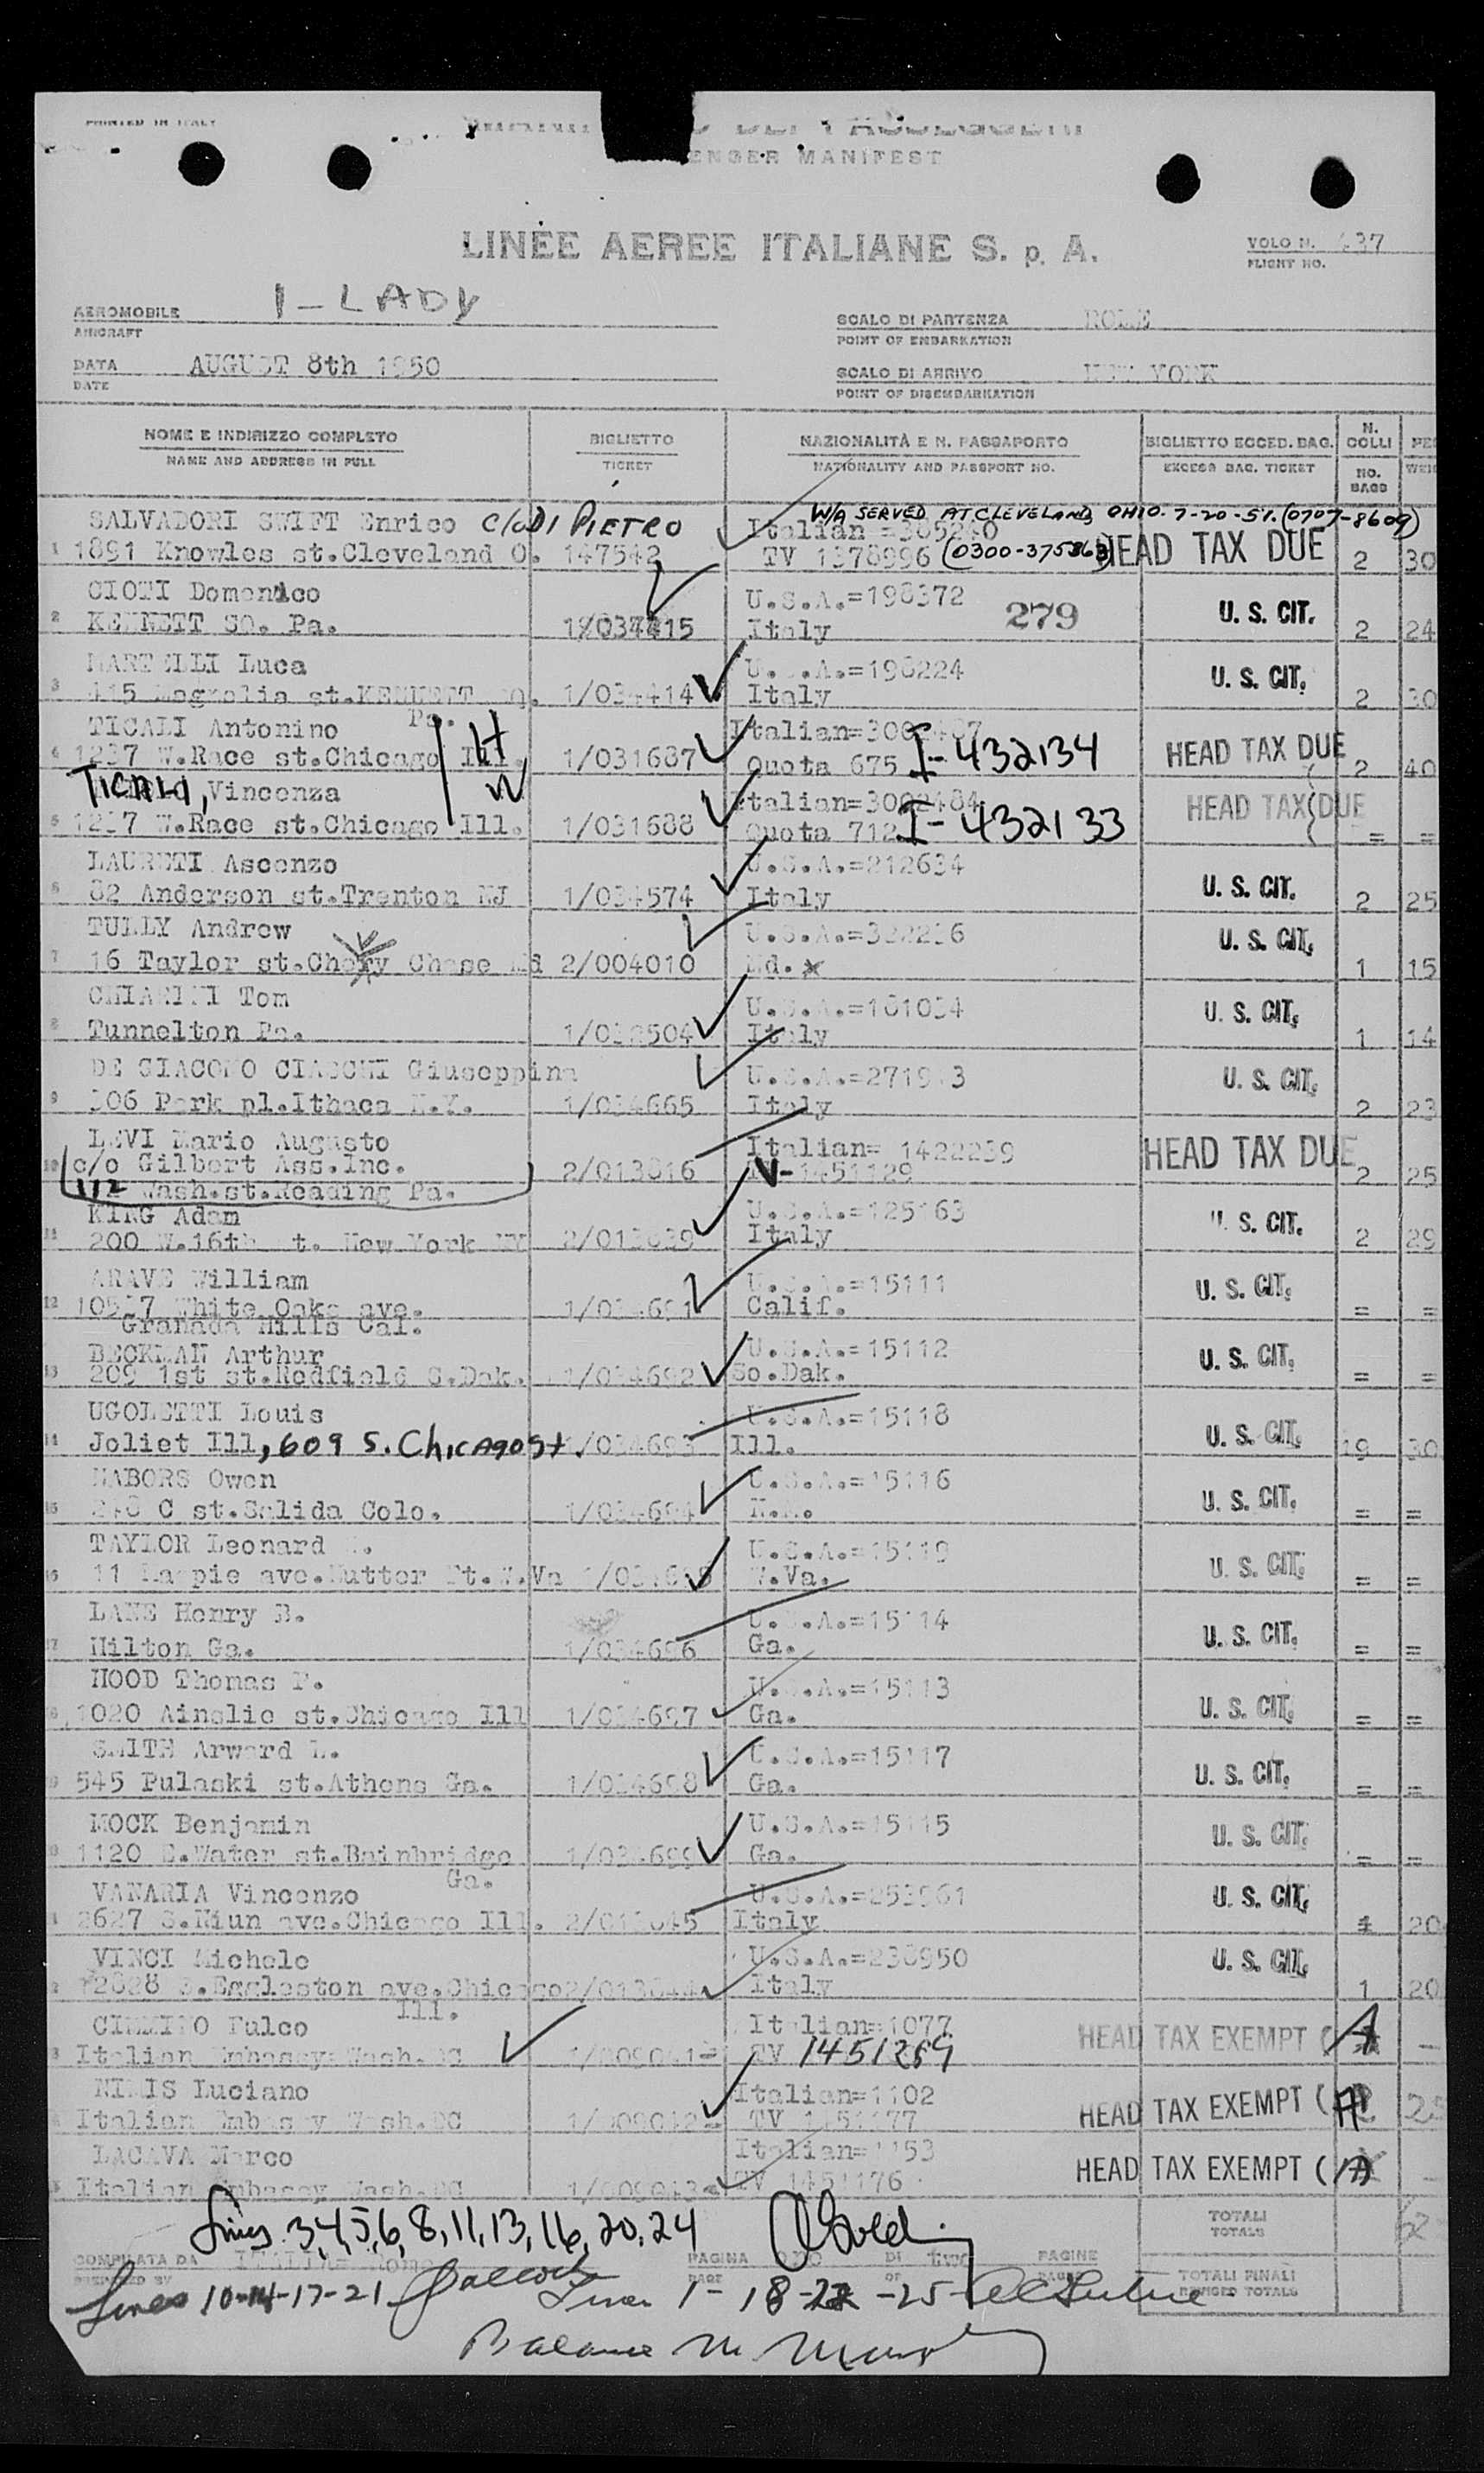 PRINTED IN ITALY
ENGER MANIFEST
LINEE AEREE ITALIANE S. p. A.
VOLO N. 437
FLIGHT NO.
AEROMOBILE I-LADY
AIRCRAFT
SCALO DI PARTENZA ROME
POINT OF EMBARKATION
DATA AUGUST 8th 1950
DATE
SCALO DI ARRIVO NEW YORK
POINT OF DISEMBARKATION
NOME E INDIRIZZO COMPLETO BIGLIETTO NAZIONALITÀ E N. PASSAPORTO BIGLIETTO ECCED. BAG. N. COLLI
NAME AND ADDRESS IN FULL TICKET NATIONALITY AND PASSPORT NO. EXCESS BAG. TICKET NO. BAGS
W/A SERVED AT CLEVELAND, OHIO. 7-20-51. (0707-8609)
SALVADORI SWIFT Enrico C/O DI PIETRO Italian =385240
1 1891 Knowles st.Cleveland O. 147542 TV 1378996 (0300-375863) HEAD TAX DUE 2 30
CIOTI Domenico U.S.A.=198372 279 U. S. CIT.
2 KENNETT SQ. Pa. 1/034415 Italy 2 24
MARTELLI Luca U.S.A.=198224 U. S. CIT.
3 415 Magnolia st.KENNETT SQ. 1/034414 Italy 2 30
Pa.
TICALI Antonino H Italian=3002487
4 1237 W.Race st.Chicago Ill. 1/031687 Quota 675 I-432134 HEAD TAX DUE 2 40
TICALI, Vincenza W Italian=3002484 HEAD TAX DUE
5 1237 W.Race st.Chicago Ill. 1/031688 Quota 712 I-432133 = =
LAURETI Ascenzo U.S.A.=212634
6 82 Anderson st.Trenton NJ 1/034574 Italy U. S. CIT. 2 25
TULLY Andrew U.S.A.=332236 U. S. CIT.
7 16 Taylor st.Chevy Chase Md 2/004010 Md. 1 15
CHIARINI Tom U.S.A.=181034 U. S. CIT.
8 Tunnelton Pa. 504 Italy 1 14
DE GIACOMO CIACCHI Giuseppina U.S.A.=2719 3 U. S. CIT.
9 306 Park pl.Ithaca N.Y. 1/034665 Italy 2 23
LEVI Mario Augusto Italian= 1422239 HEAD TAX DUE
10 c/o Gilbert Ass.Inc. 2/013816 V-1451129 2 25
112 Wash.st.Reading Pa.
KING Adam U.S.A.=125163 U. S. CIT.
11 200 W.16th st. New York NY 2/013839 Italy 2 29
ARAVE William U.S.A.=15111 U. S. CIT.
12 10527 White Oaks ave. 1/034691 Calif. = =
Granada Hills Cal.
BECKMAN Arthur U.S.A.=15112 U. S. CIT.
13 209 1st st.Redfield S.Dak. 1/034692 So.Dak. = =
UGOLETTI Louis U.S.A.=15118
14 Joliet Ill, 609 S. Chicago St. 1/034693 Ill. U. S. CIT. 19 30
NABORS Owen U.S.A.=15116 U. S. CIT.
15 C st.Salida Colo. 1/034694 N.M. = =
TAYLOR Leonard U.S.A.=15119 U. S. CIT.
16 11 Magpie ave.Nutter Ft.W.Va W.Va. = =
LANE Henry B. U.S.A.=15114 U. S. CIT.
17 Milton Ga. 1/034696 Ga. = =
HOOD Thomas F. U.S.A.=15113
1020 Ainslie st.Chicago Ill 1/034697 Ga. U. S. CIT. = =
SMITH Arward L. U.S.A.=15117
545 Pulaski st.Athens Ga. 1/034698 Ga. U. S. CIT. = =
MOCK Benjamin U.S.A.=15115 U. S. CIT.
1120 E.Water st.Bainbridge 1/034699 Ga. = =
Ga.
VANARIA Vincenzo U.S.A.=253961 U. S. CIT.
2627 S.Niun ave.Chicago Ill. 2/013845 Italy 1 20
VINCI Michele U.S.A.=238950 U. S. CIT.
12628 S.Eggleston ave.Chicago 2/013844 Italy 1 20
Ill.
CIMMINO Fulco Italian=1077 HEAD TAX EXEMPT (A)
Italian Embassy Wash.DC 1/009041= TV 1451269
NIMIS Luciano Italian=1102 HEAD TAX EXEMPT (A)
Italian Embassy Wash.DC 1/009042= TV 1451177 25
LACAVA Marco Italian=1153 HEAD TAX EXEMPT (A)
Italian Embassy Wash.DC 1/009043= TV 1451176
Lines 3,4,5,6,8,11,13,16,20,24
TOTALI
TOTALS
COMPILATA DA Rome PAGINA one DI two PAGINE
PREPARED BY PAGE OF PAGES
TOTALI FINALI
Lines 10-14-17-21 Lines 1-18-22-25
Balance